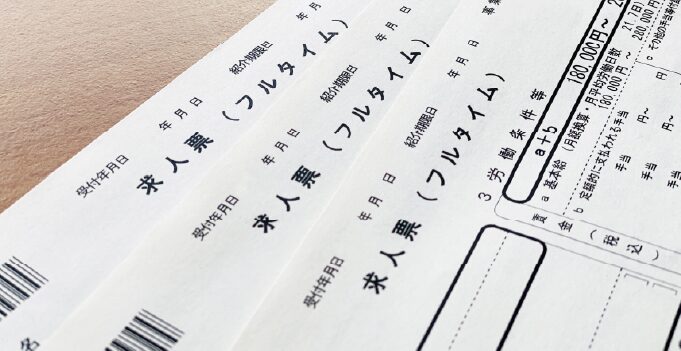 年 月
紹介期限日
求人票（フルタイム）
年 月 日
受付年月日
年 月 日
紹介期限日
求人票（フルタイム）
年 月 日
受付年月日
年 月 日
紹介期限日
求人票（フルタイム）
年 月 日
受付年月日
3 労働条件等
a＋b
180,000円～
a 基本給（月額換算・月平均労働日数
21.7日）
180,000 円～
280,000 円
b 定額的に支払われる手当
手当 円～
手当 円～
手当 円～
賃金（税込）